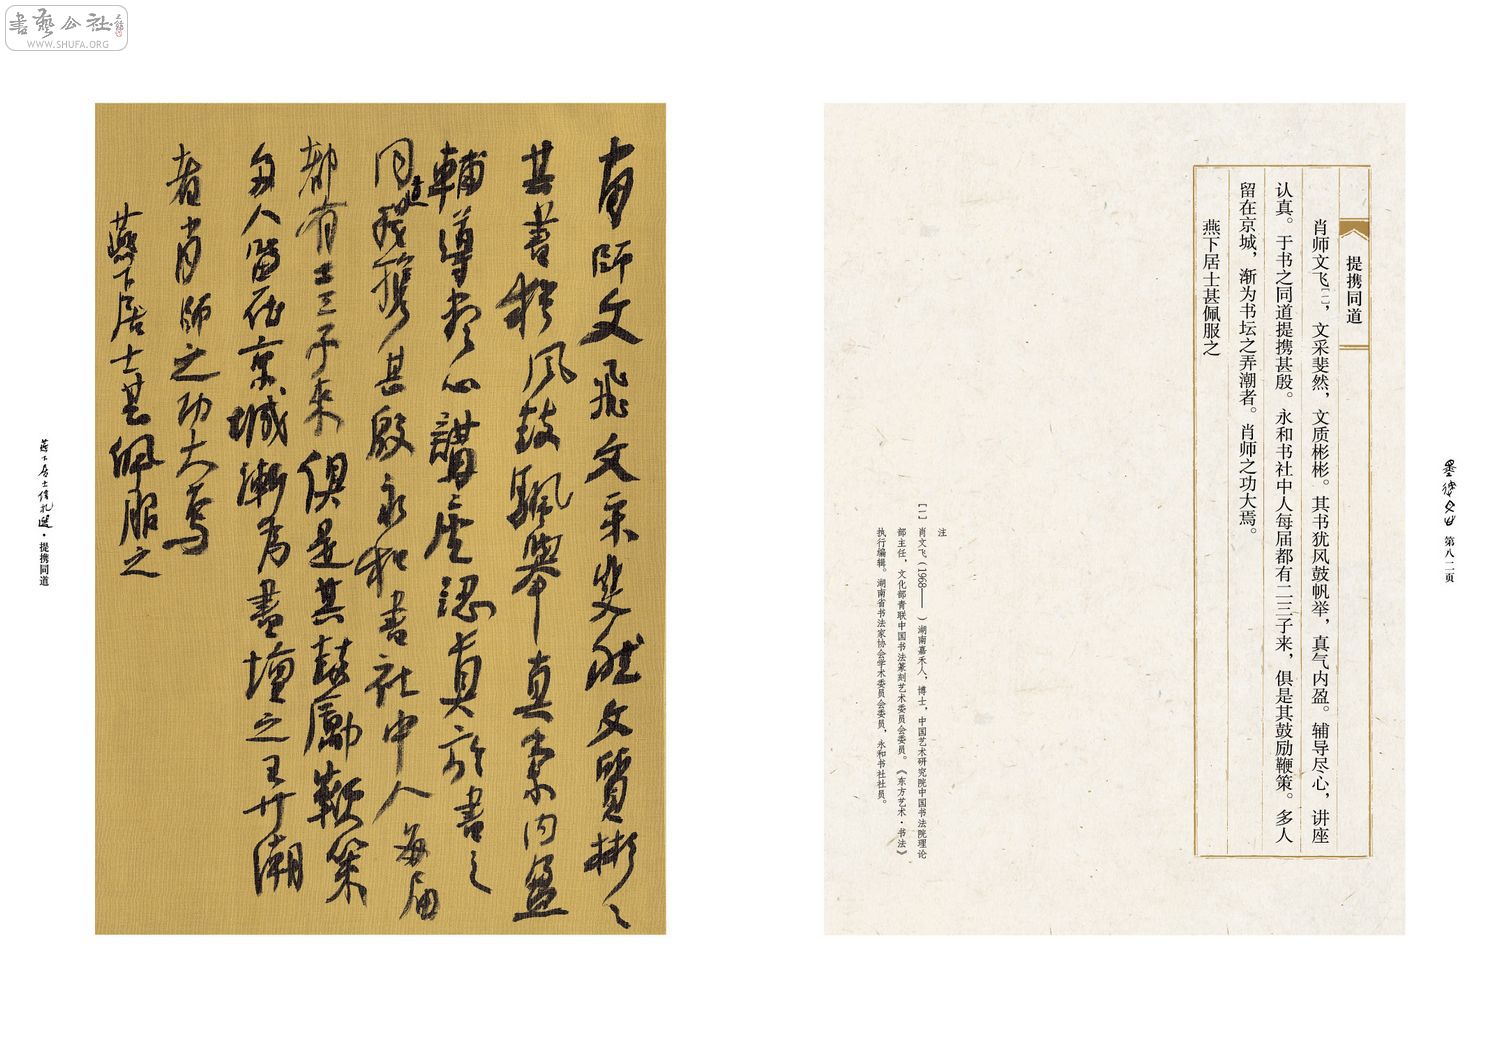 書藝公社
WWW.SHUFA.ORG
提携同道
肖师文飞〔一〕，文采斐然，文质彬彬。其书犹风鼓帆举，真气内盈。辅导尽心，讲座
认真。于书之同道提携甚殷。永和书社中人每届都有二三子来，俱是其鼓励鞭策。多人
留在京城，渐为书坛之弄潮者。肖师之功大焉。
燕下居士甚佩服之
注
〔一〕 肖文飞（1968—— ）湖南嘉禾人，博士，中国艺术研究院中国书法院理论
部主任，文化部青联中国书法篆刻艺术委员会委员。《东方艺术·书法》
执行编辑。湖南省书法家协会学术委员会委员，永和书社社员。
第八二页
肖师文飞文采斐然文質彬々
其書猶风鼓颿舉真气内盈
輔導尽心講座認真於書之
同道提携甚殷永和書社中人每届
都有二三子来俱是其鼓勵鞭策
多人留在京城漸为書壇之弄潮
者肖师之功大焉
燕下居士甚佩服之
燕下居士信札选·提携同道